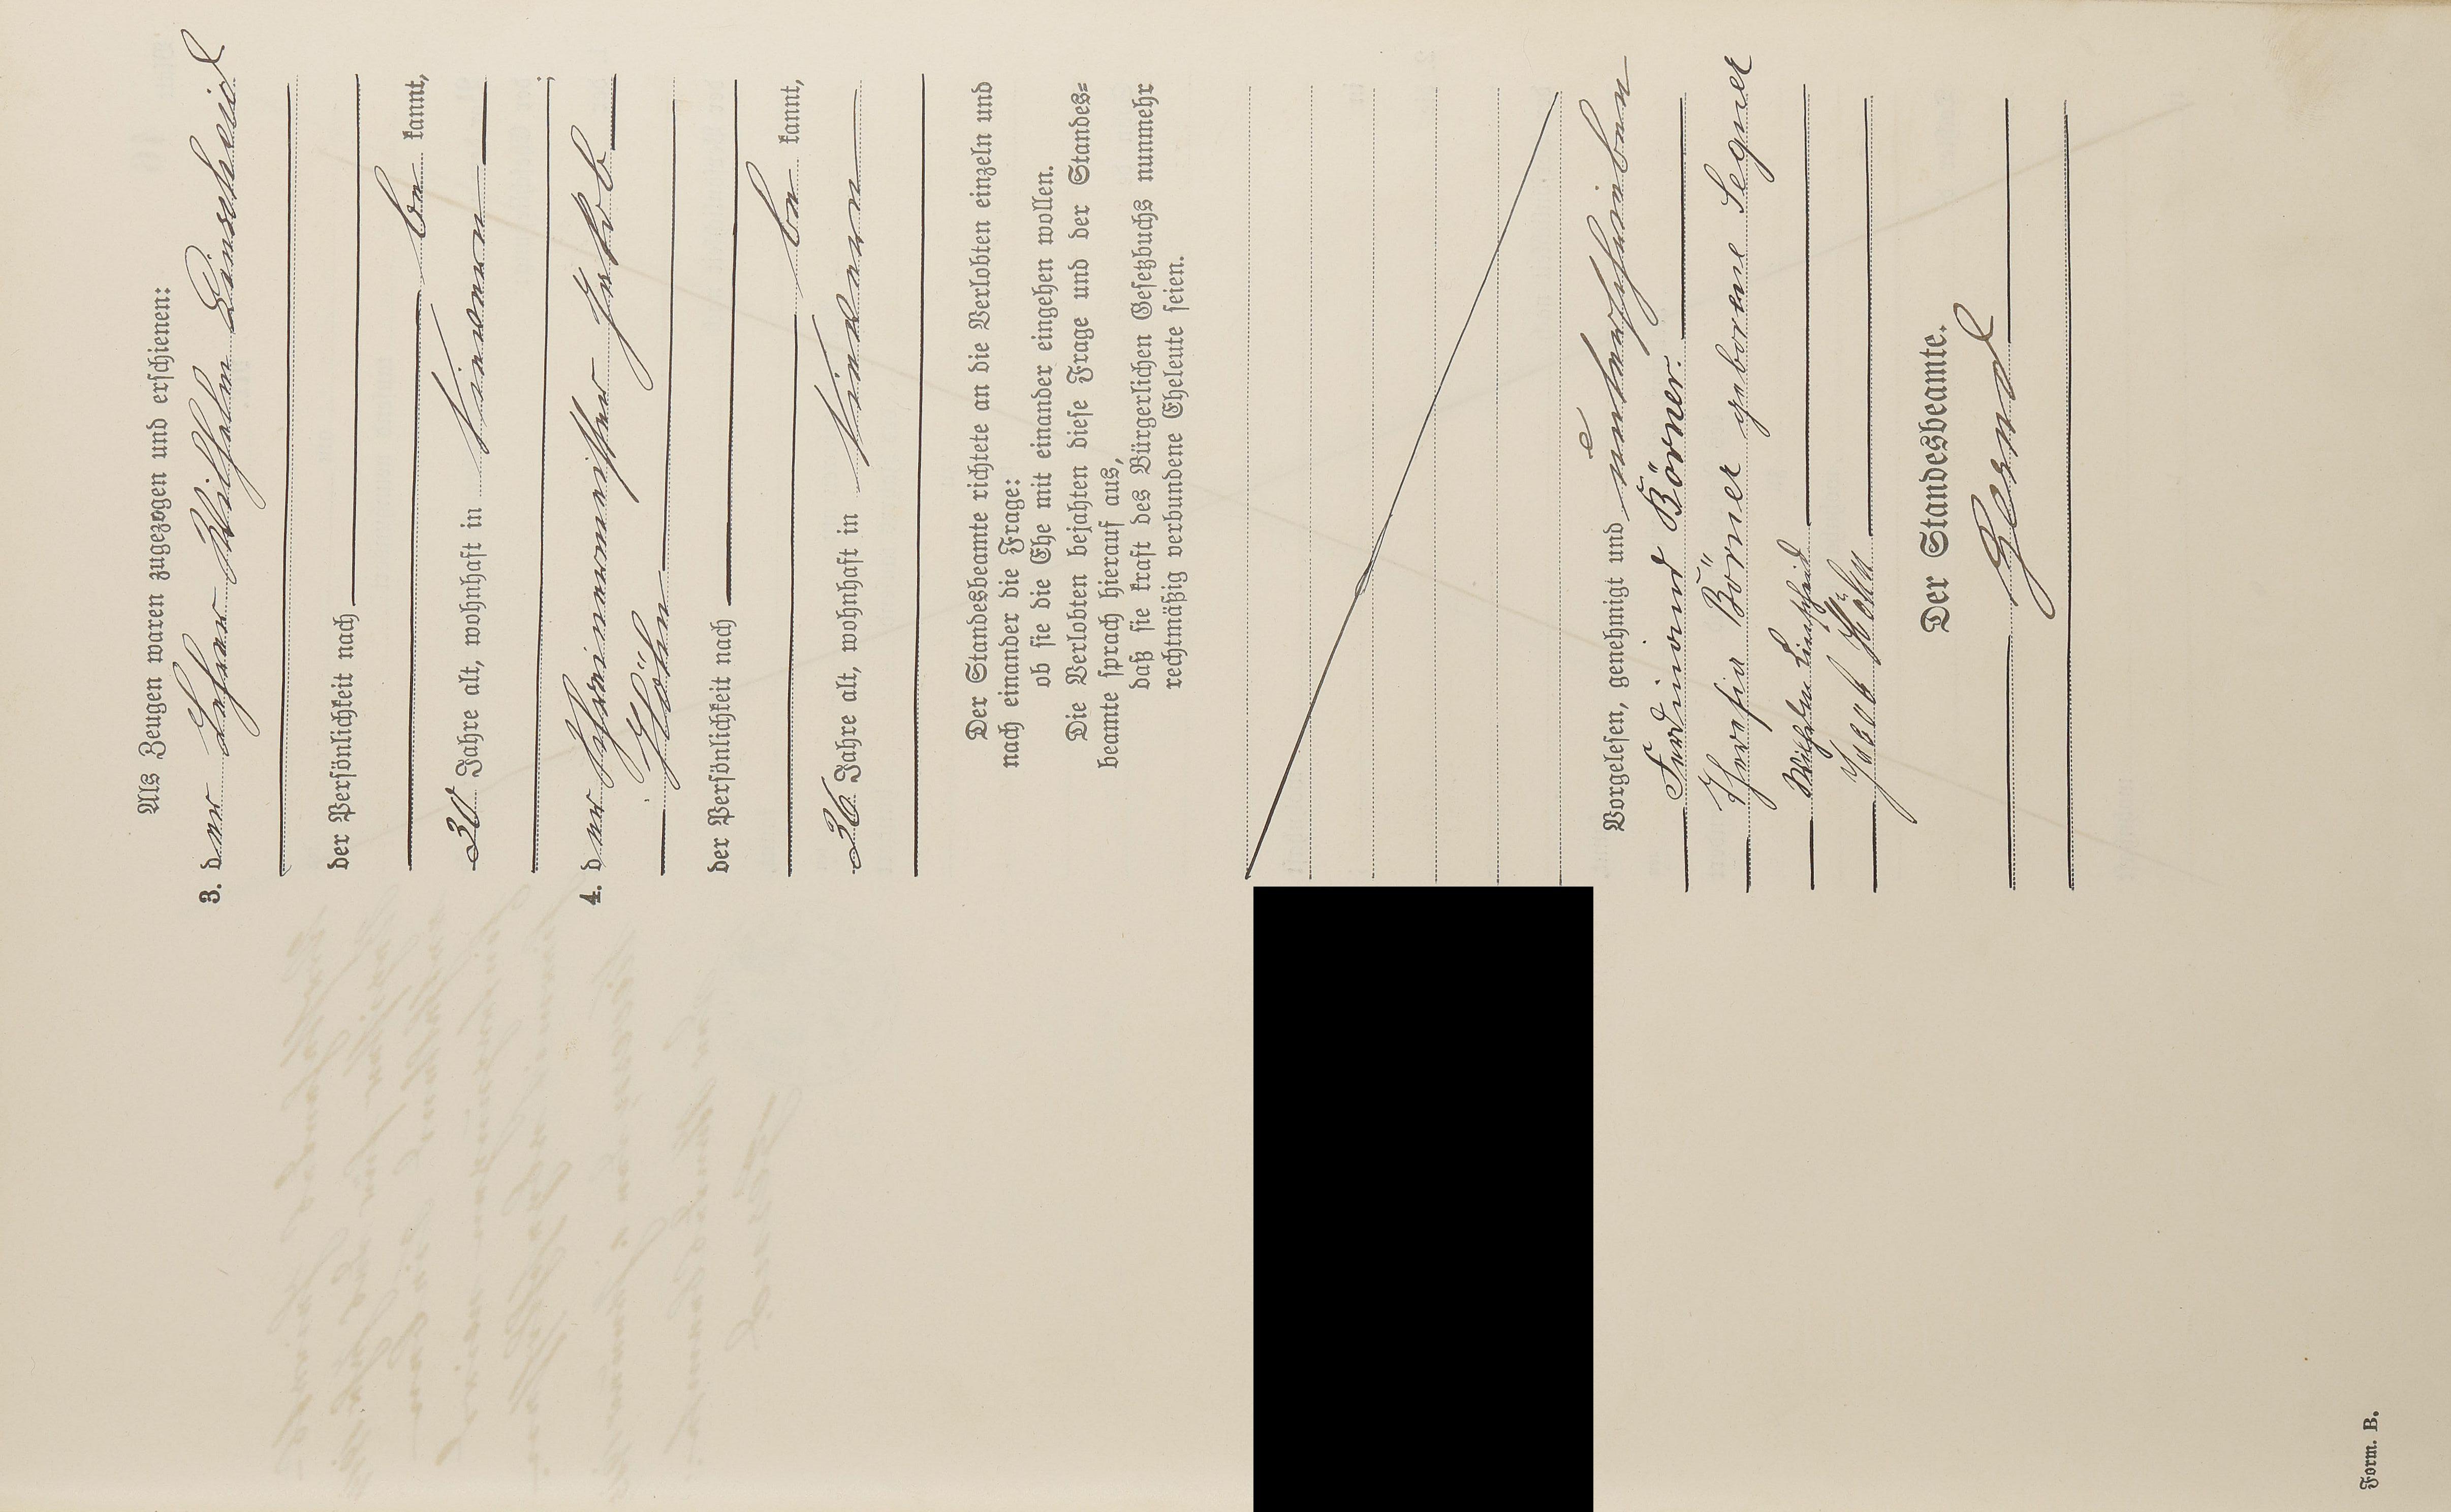 Als Zeugen waren zugezogen und erschienen:
3. der Lehrer Wilhelm Linscheid
der Persönlichkeit nach
be kannt,
30 Jahre alt, wohnhaft in Linden
4. der Schreinermeister Jakob
Höhn
der Persönlichkeit nach
be kannt,
36 Jahre alt, wohnhaft in Linden
Der Standesbeamte richtete an die Verlobten einzeln und
nach einander die Frage:
ob sie die Ehe mit einander eingehen wollen.
Die Verlobten bejahten diese Frage und der Standes=
beamte sprach hierauf aus,
daß sie kraft des Bürgerlichen Gesetzbuchs nunmehr
rechtmäßig verbundene Eheleute seien.
Vorgelesen, genehmigt und unterschrieben
Ferdinand Börner.
Theresia Börner geborene Segner
Wilhelm Linscheid
Jacob Höhn
Der Standesbeamte.
Form. B.